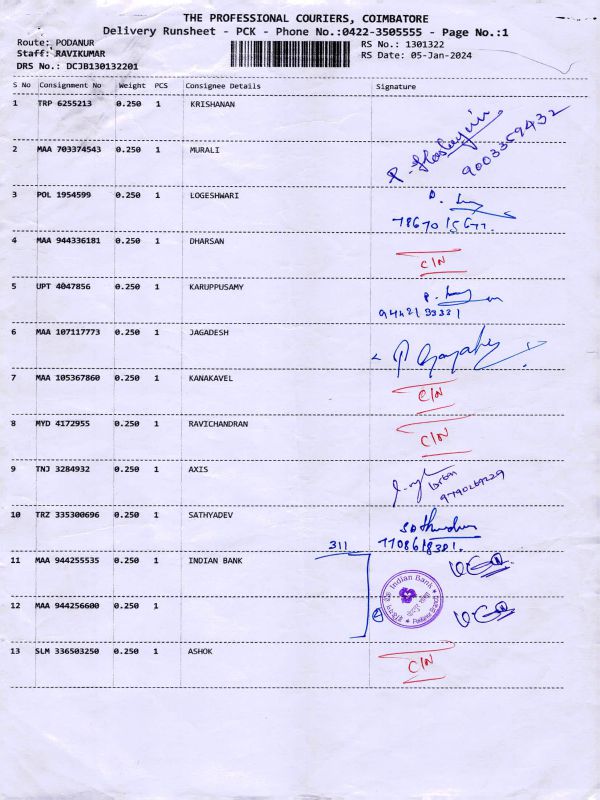 THE PROFESSIONAL COURIERS, COIMBATORE
Delivery Runsheet - PCK - Phone No.:0422-3505555 - Page No.:1
Route: PODANUR
RS No.: 1301322
Staff: RAVIKUMAR
RS Date: 05-Jan-2024
DRS No.: DCJB130132201
S No Consignment No Weight PCS Consignee Details Signature
1 TRP 6255213 0.250 1 KRISHANAN
9003359432
2 MAA 703374543 0.250 1 MURALI
3 POL 1954599 0.250 1 LOGESHWARI
7867015677.
4 MAA 944336181 0.250 1 DHARSAN
C/N
5 UPT 4047856 0.250 1 KARUPPUSAMY
6 MAA 107117773 0.250 1 JAGADESH
7 MAA 105367860 0.250 1 KANAKAVEL
C/N
8 MYD 4172955 0.250 1 RAVICHANDRAN
C/N
9 TNJ 3284932 0.250 1 AXIS
10 TRZ 335300696 0.250 1 SATHYADEV
311
11 MAA 944255535 0.250 1 INDIAN BANK
Indian Bank
Podanur Branch
12 MAA 944256600 0.250 1
13 SLM 336503250 0.250 1 ASHOK
C/N